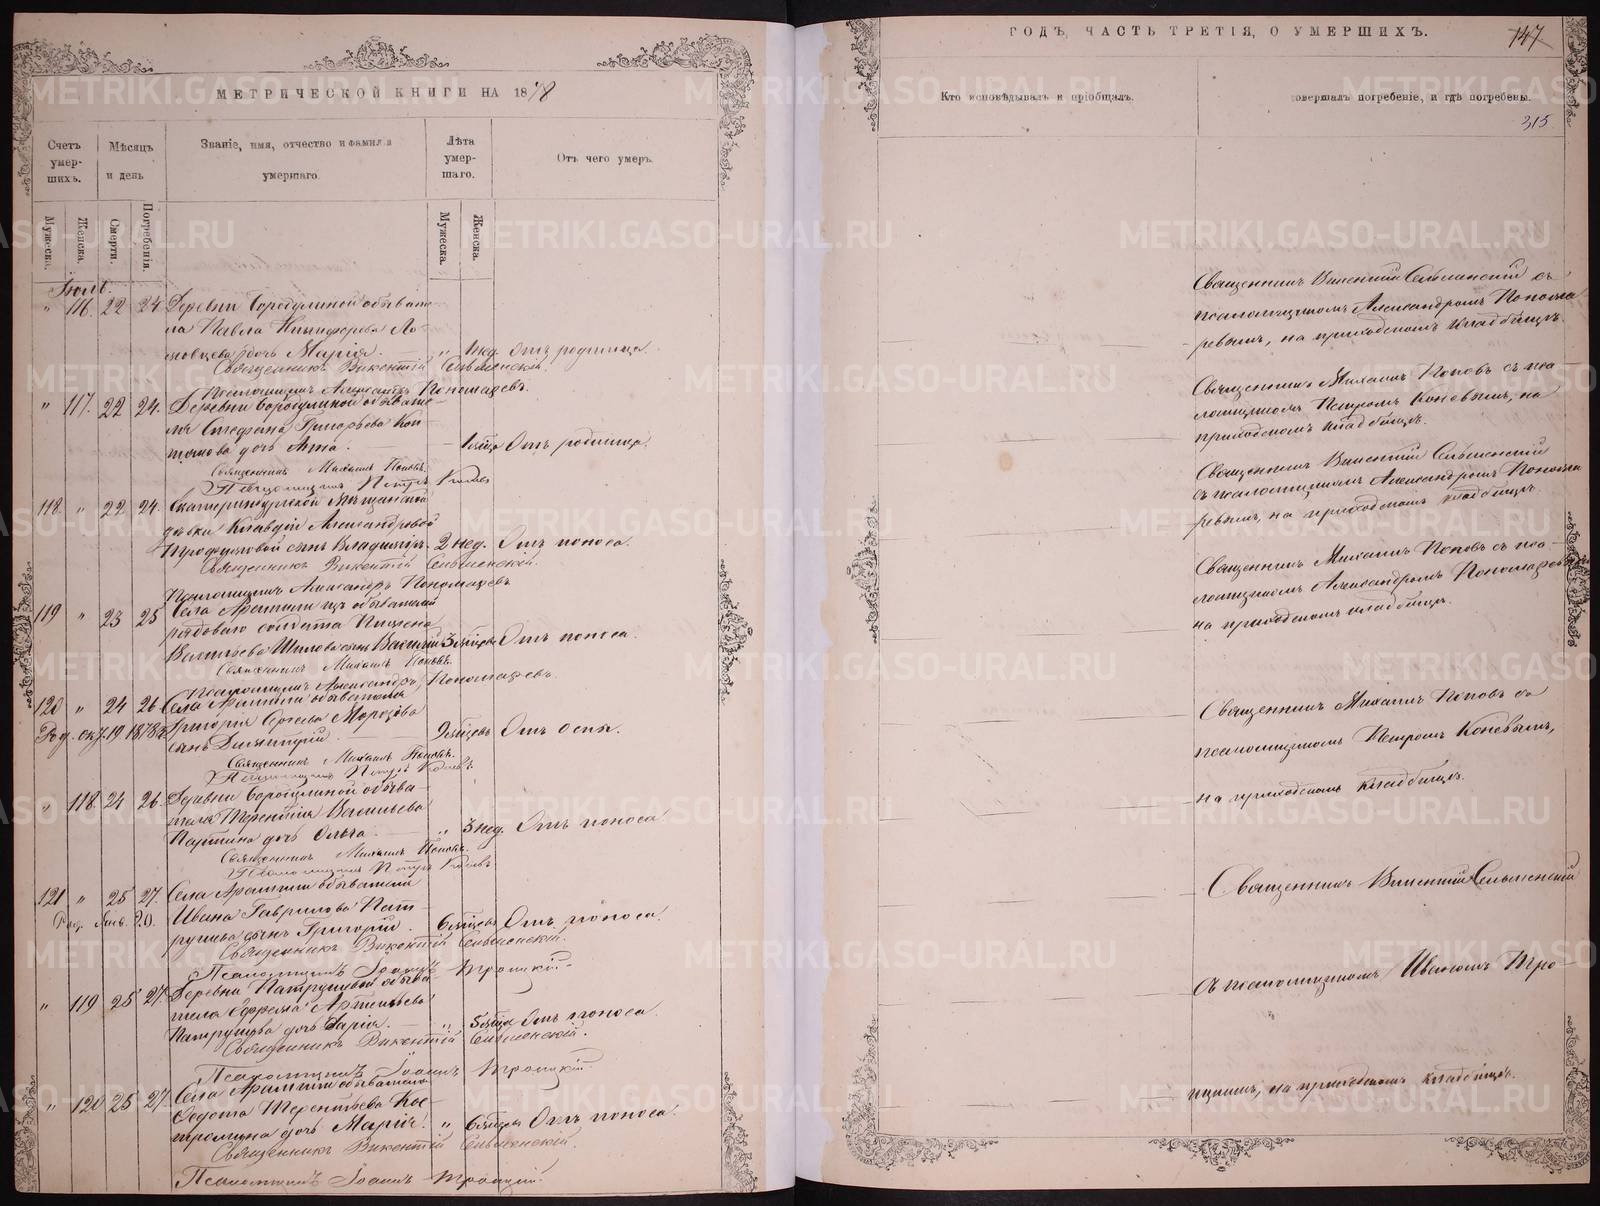 МЕТРИЧЕСКОЙ КНИГИ НА 1878
Счетъ умер-шихъ.
Мѣсяцъ и день
Званіе, имя, отчество и фамилія
умершаго.
Лѣта умер-шаго.
Отъ чего умеръ.
Мужеска.
Женска.
Смерти.
Погребенія.
Мужеска.
Женска.
Іюль.
" 116. 22 24 Деревни Бородулиной обывате
ля Павла Никифорова Ло-
дочь Марія. " 1 нед. Отъ родимца.
Священникъ Викентій Сельменскій.
Псаломщикъ Александръ Пономаревъ.
" 117. 22 24. Деревни Бородулиной обывате-
ля Стефана Григорьева
дочь Анна. 1 мѣсца Отъ родимца.
Священникъ Михаилъ Поповъ.
Псаломщикъ Петръ Коневъ
118. " 22 24. Екатеринбургской мѣщанской
дѣвки Клавдіи Александровой
сынъ Владиміръ. 2 нед. Отъ поноса.
Священникъ Викентій Сельменскій.
Псаломщикъ Александръ Пономаревъ
119 " 23 25 Села Арамили изъ обывателей
рядоваго солдата
Васильева сынъ Василій 3 мѣсцевъ Отъ поноса.
Священникъ Михаилъ Поповъ.
Псаломщикъ Александръ Пономаревъ.
120 " 24 26 Села Арамили обывателя
Род. окт. 19 187 Григорія Сергѣева Морозова
сынъ Димитрій. 9 мѣсцевъ Отъ оспы.
Священникъ Михаилъ Поповъ.
Псаломщикъ Петръ Коневъ
" 118. 24 26. Деревни Бородулиной обыва-
теля Терентія Васильева
дочь Ольга. " 3 нед. Отъ поноса.
Священникъ Михаилъ Поповъ.
Псаломщикъ Петръ Коневъ.
121 " 25 27. Села Арамили обывателя
Род. Янв. 20. Ивана Гаврилова Пат-
рушева сынъ Григорій. 6 мѣсцевъ Отъ поноса.
Священникъ Викентій Сельменскій.
Псаломщикъ Іоаннъ Троицкій.
" 119 25 27. Деревни Патрушевой обыва-
теля Ефрема Артемьева
Патрушева дочь Дарія. " 5 мѣсца Отъ поноса.
Священникъ Викентій Сельменскій.
Псаломщикъ Іоаннъ Троицкій.
" 120 25 27 Села Арамили обывателя
Федота Терентьева Кос-
тромина дочь Марія. " 6 мѣсцевъ Отъ поноса.
Священникъ Викентій Сельменскій.
Псаломщикъ Іоаннъ Троицкій.
ГОДЪ, ЧАСТЬ ТРЕТІЯ, О УМЕРШИХЪ.
147
Кто исповѣдывалъ и пріобщалъ.
совершалъ погребеніе, и гдѣ погребены.
315
Священникъ Викентій Сельменскій съ
псаломщикомъ Александромъ Понома
ревымъ, на приходскомъ кладбищѣ.
Священникъ Михаилъ Поповъ съ пса
ломщикомъ Петромъ Коневымъ, на
приходскомъ кладбищѣ.
Священникъ Викентій Сельменскій
съ псаломщикомъ Александромъ Понома
ревымъ, на приходскомъ кладбищѣ.
Священникъ Михаилъ Поповъ съ пса-
ломщикомъ Александромъ Пономаревымъ
на приходскомъ кладбищѣ.
Священникъ Михаилъ Поповъ съ
псаломщикомъ Петромъ Коневымъ,
на приходскомъ кладбищѣ.
Священникъ Викентій Сельменскій
съ псаломщикомъ Иваномъ Тро-
ицкимъ, на приходскомъ кладбищѣ.
METRIKI.GASO-URAL.RU